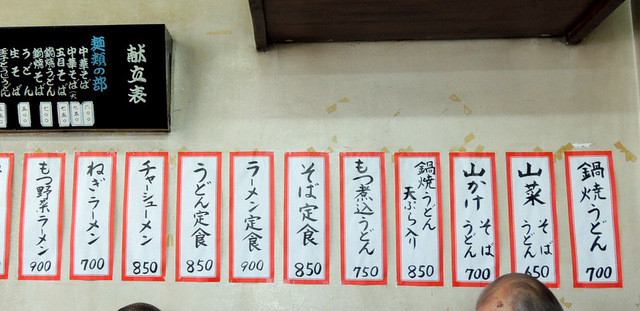 献立表
麺類の部
中華そば
中華そば(大
五目そば
鍋焼そば
鍋焼うどん
うどん
生そば
鍋焼うどん
700
山菜 そば
うどん
650
山かけ そば
うどん
700
鍋焼うどん
天ぷら入り
850
もつ煮込うどん
750
そば定食
850
ラーメン定食
900
うどん定食
850
チャーシューメン
850
ねぎラーメン
700
もつ野菜ラーメン
900